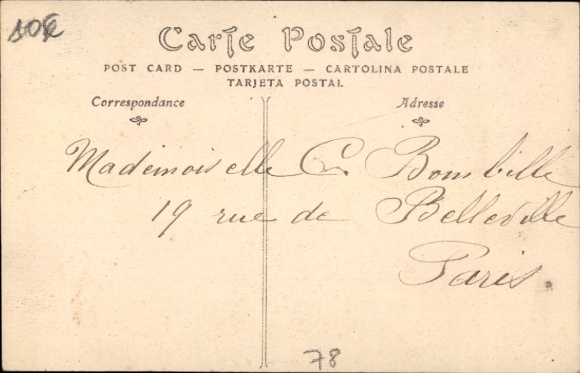 10€
Carte Postale
POST CARD — POSTKARTE — CARTOLINA POSTALE
TARJETA POSTAL
Correspondance
Adresse
Mademoiselle C. Bombille
19 rue de Belleville
Paris.
78